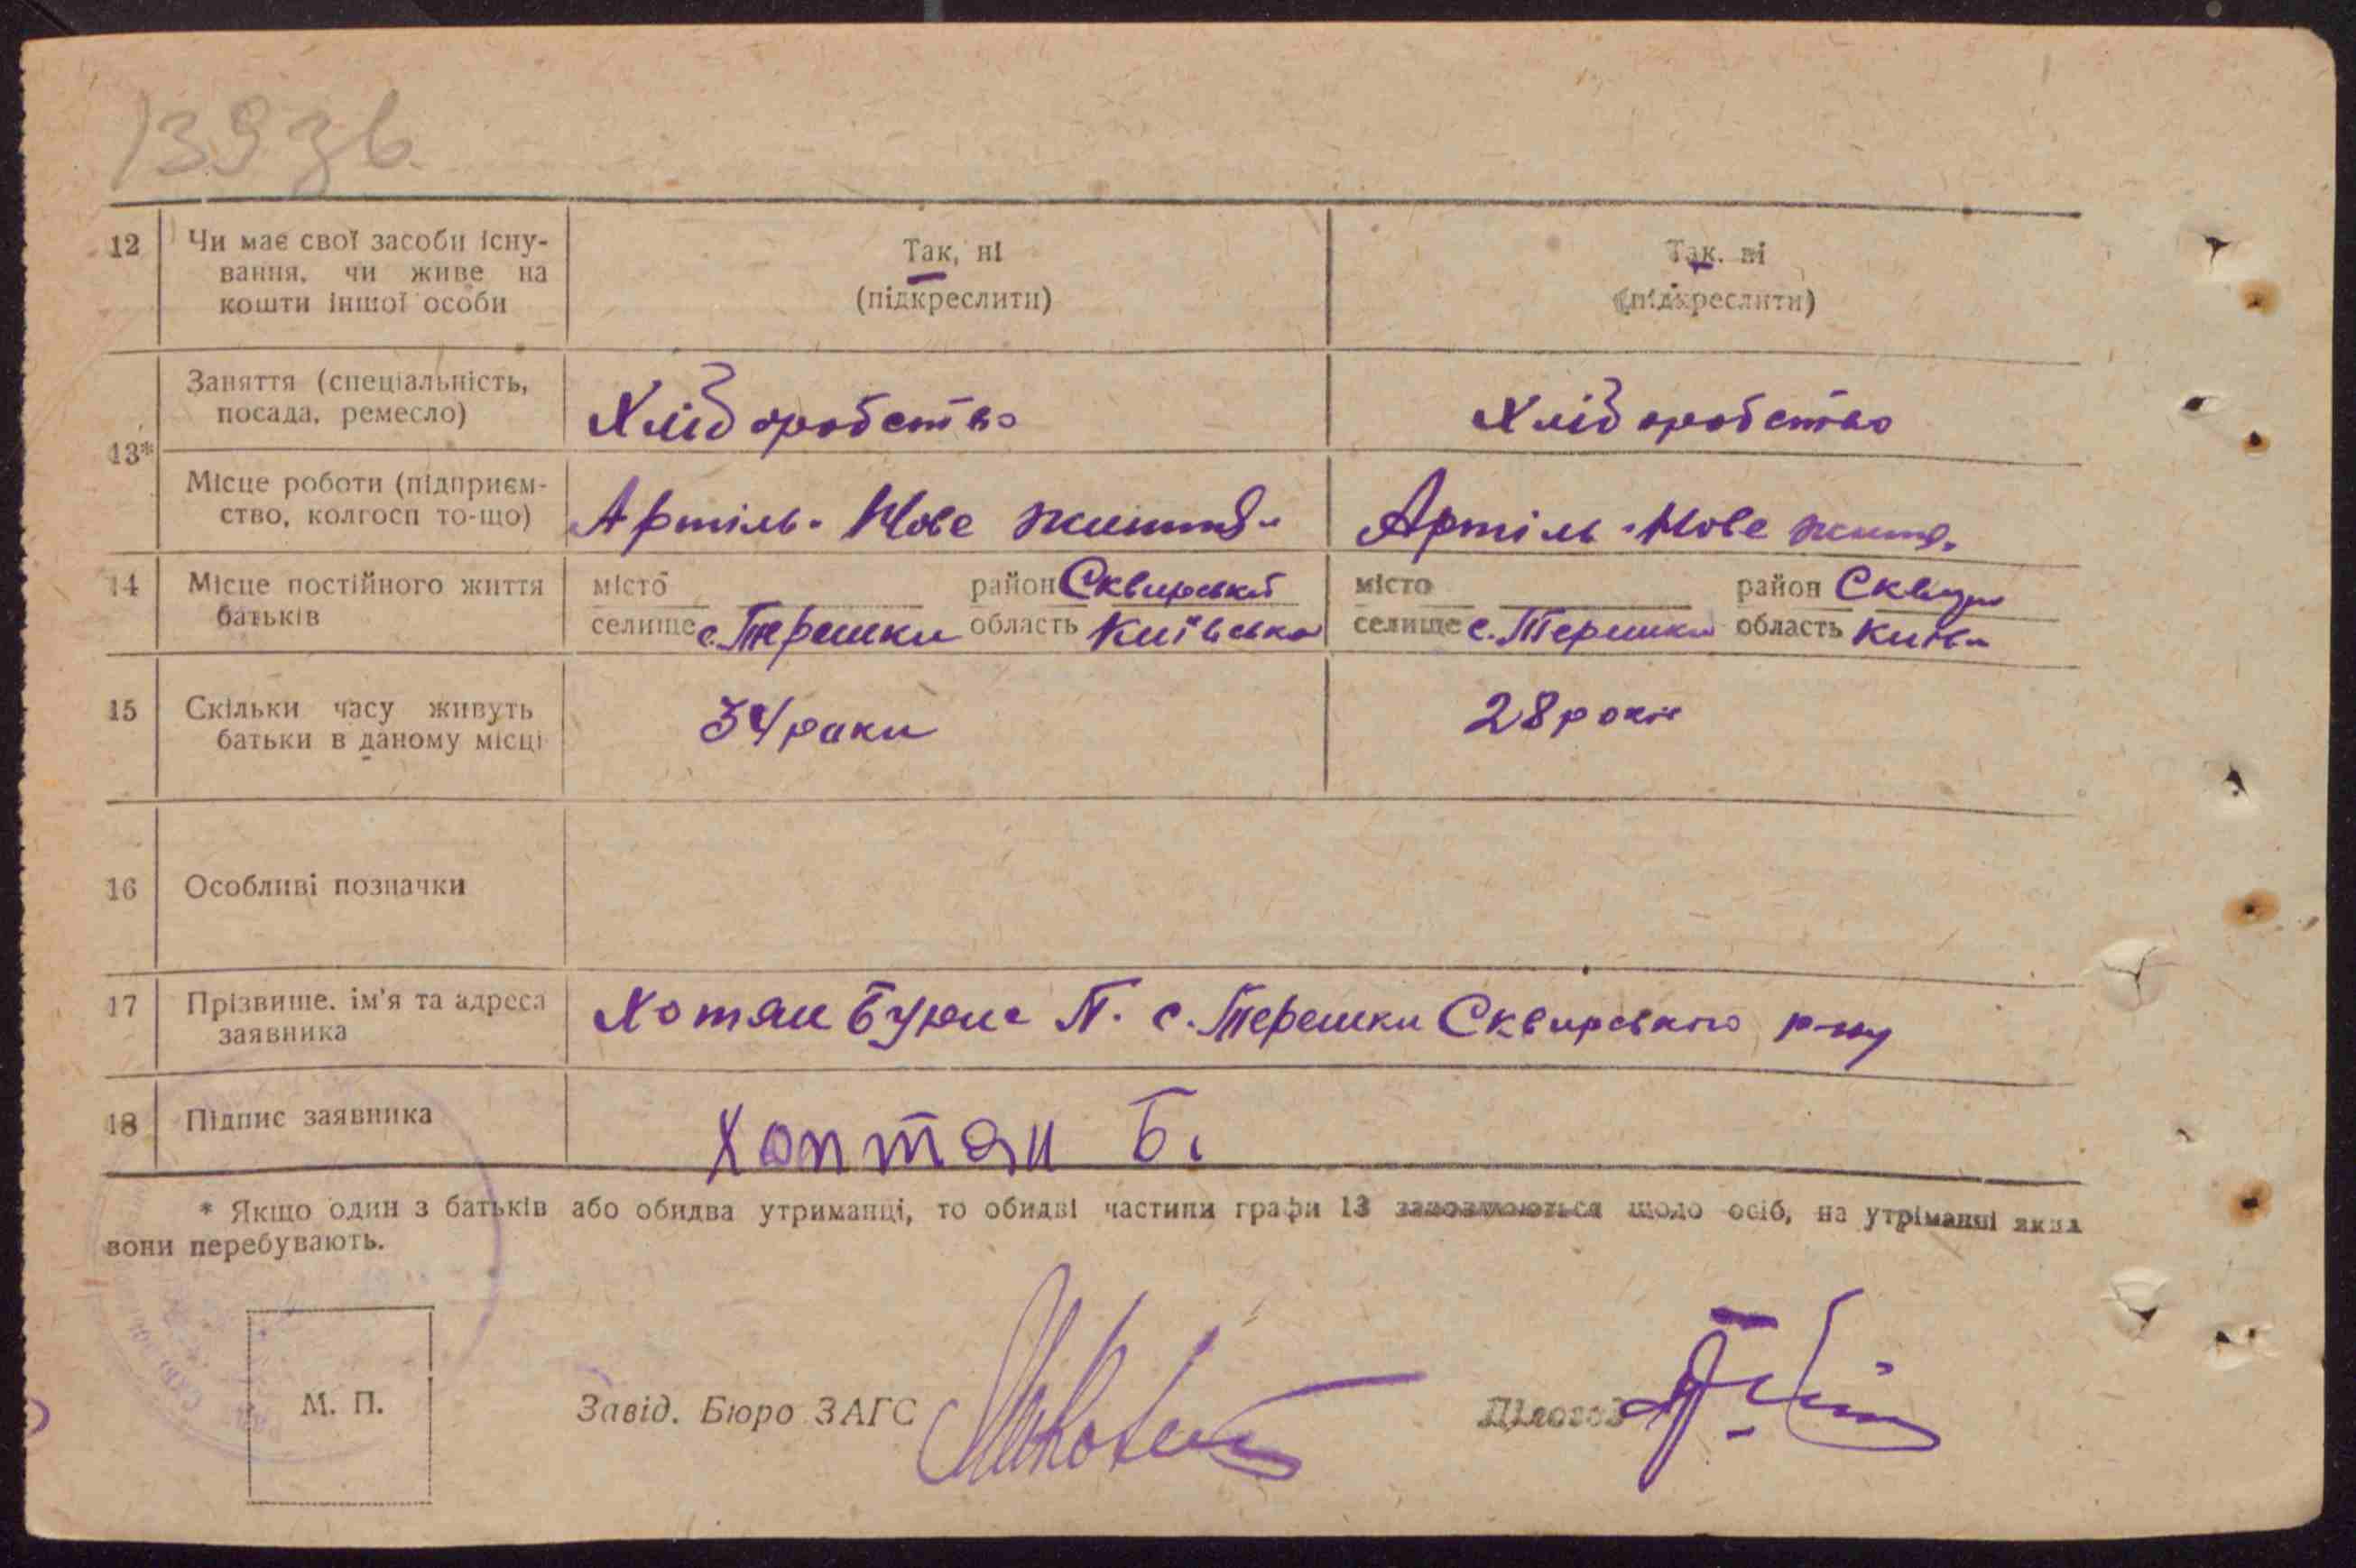 139 зв.
12 Чи має свої засоби існу-
вання, чи живе на
кошти іншої особи
Так, ні
(підкреслити)
Так, ні
(підкреслити)
13*
Заняття (спеціальність,
посада, ремесло)
Хліборобство
Хліборобство
Місце роботи (підприєм-
ство, колгосп то-що)
Артіль "Нове життя"
Артіль "Нове життя"
14 Місце постійного життя
батьків
місто район Сквирський
селище с. Терешки область Київська
місто район Сквир
селище с. Терешки область Київ
15 Скільки часу живуть
батьки в даному місці
34 роки
28 років
16 Особливі позначки
17 Прізвище, ім'я та адреса
заявника
Хотян П. с. Терешки Сквирського р-ну
18 Підпис заявника
Хоптян Б.
* Якщо один з батьків або обидва утриманці, то обидві частини графи 13 заповнюються щодо осіб, на утріманні яких
вони перебувають.
М. П.
Завід. Бюро ЗАГС
Діловод